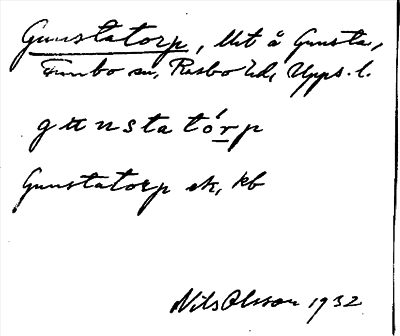 Gunstatorp, Utt å Gunsta,
Funbo sn, Rasbo hd, Upps. l.
gunstatórp
Gunstatorp ek, kb
Nils Olsson 1932